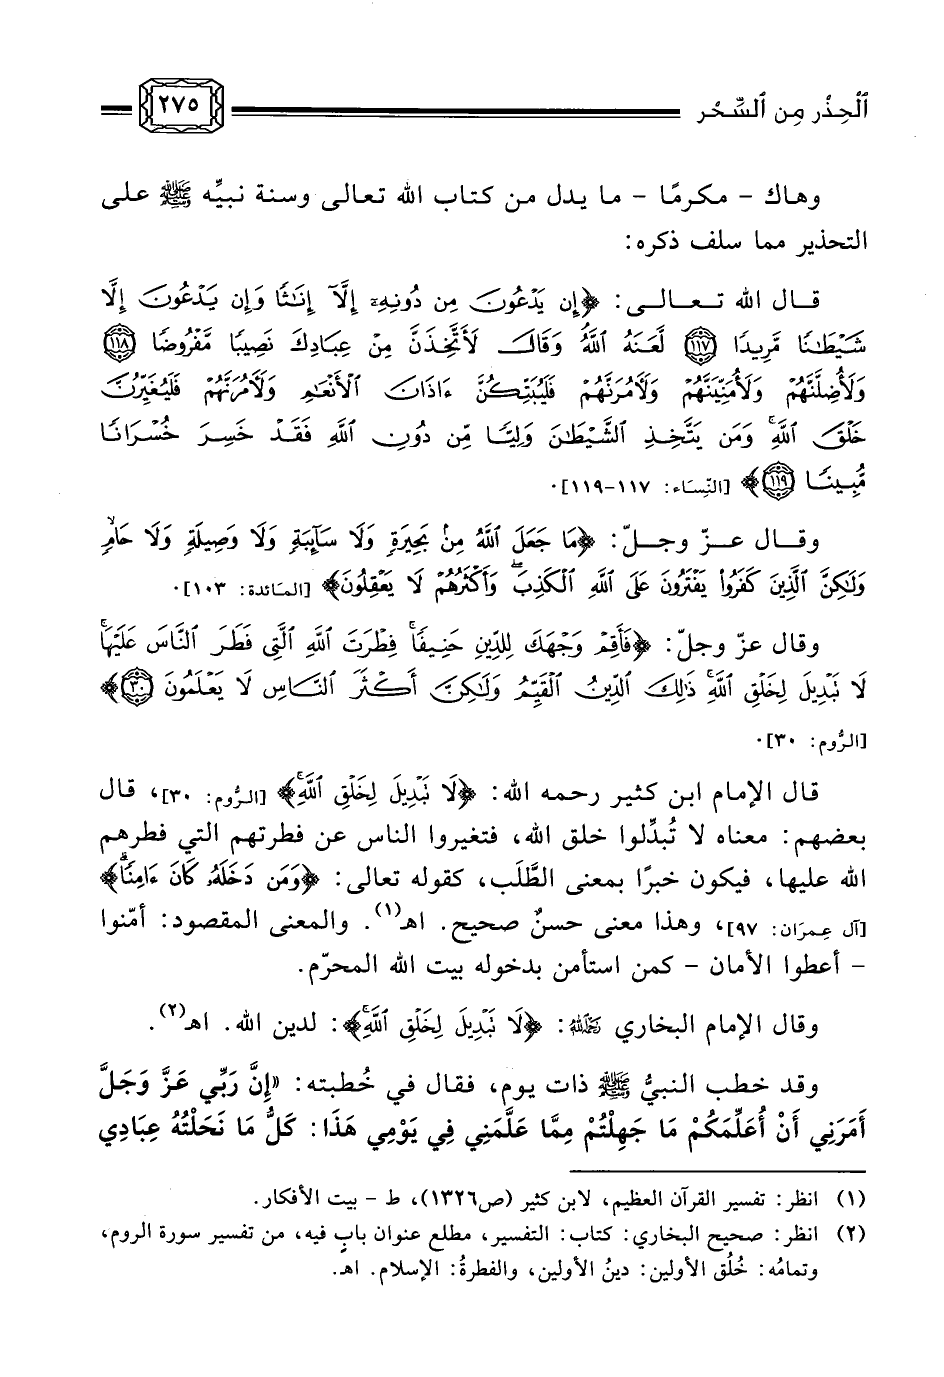 الحذر من السحر ٢٧٥
وهاك - مكرمًا - ما يدل من كتاب الله تعالى وسنة نبيِّه ﷺ على
التحذير مما سلف ذكره:
قال الله تعالى: ﴿إِن يَدْعُونَ مِن دُونِهِۦٓ إِلَّآ إِنَٰثًا وَإِن يَدْعُونَ إِلَّا
شَيْطَٰنًا مَّرِيدًا ١١٧ لَّعَنَهُ ٱللَّهُ وَقَالَ لَأَتَّخِذَنَّ مِنْ عِبَادِكَ نَصِيبًا مَّفْرُوضًا ١١٨
وَلَأُضِلَّنَّهُمْ وَلَأُمَنِّيَنَّهُمْ وَلَأٓمُرَنَّهُمْ فَلَيُبَتِّكُنَّ ءَاذَانَ ٱلْأَنْعَٰمِ وَلَأٓمُرَنَّهُمْ فَلَيُغَيِّرُنَّ
خَلْقَ ٱللَّهِ وَمَن يَتَّخِذِ ٱلشَّيْطَٰنَ وَلِيًّا مِّن دُونِ ٱللَّهِ فَقَدْ خَسِرَ خُسْرَانًا
مُّبِينًا ١١٩﴾ [النِّسَاء: ١١٧-١١٩].
وقال عزّ وجلّ: ﴿مَا جَعَلَ ٱللَّهُ مِنۢ بَحِيرَةٍ وَلَا سَآئِبَةٍ وَلَا وَصِيلَةٍ وَلَا حَامٍ
وَلَٰكِنَّ ٱلَّذِينَ كَفَرُوا۟ يَفْتَرُونَ عَلَى ٱللَّهِ ٱلْكَذِبَ وَأَكْثَرُهُمْ لَا يَعْقِلُونَ﴾ [المَائدة: ١٠٣].
وقال عزّ وجلّ: ﴿فَأَقِمْ وَجْهَكَ لِلدِّينِ حَنِيفًا فِطْرَتَ ٱللَّهِ ٱلَّتِى فَطَرَ ٱلنَّاسَ عَلَيْهَا
لَا تَبْدِيلَ لِخَلْقِ ٱللَّهِ ذَٰلِكَ ٱلدِّينُ ٱلْقَيِّمُ وَلَٰكِنَّ أَكْثَرَ ٱلنَّاسِ لَا يَعْلَمُونَ ٣٠﴾
[الرُّوم: ٣٠].
قال الإمام ابن كثير رحمه الله: ﴿لَا تَبْدِيلَ لِخَلْقِ ٱللَّهِ﴾ [الرُّوم: ٣٠]، قال
بعضهم: معناه لا تُبدِّلوا خلق الله، فتغيروا الناس عن فطرتهم التي فطرهم
الله عليها، فيكون خبرًا بمعنى الطَّلَب، كقوله تعالى: ﴿وَمَن دَخَلَهُۥ كَانَ ءَامِنًا﴾
[آل عِمرَان: ٩٧]، وهذا معنى حسنٌ صحيح. اهـ(١). والمعنى المقصود: أمّنوا
- أعطوا الأمان - كمن استأمن بدخوله بيت الله المحرّم.
وقال الإمام البخاري رحمه الله: ﴿لَا تَبْدِيلَ لِخَلْقِ ٱللَّهِ﴾: لدين الله. اهـ(٢).
وقد خطب النبيُّ ﷺ ذات يوم، فقال في خُطبته: «إِنَّ رَبِّي عَزَّ وَجَلَّ
أَمَرَنِي أَنْ أُعَلِّمَكُمْ مَا جَهِلْتُمْ مِمَّا عَلَّمَنِي فِي يَوْمِي هَذَا: كَلُّ مَا نَحَلْتُهُ عِبَادِي
(١) انظر: تفسير القرآن العظيم، لابن كثير (ص١٣٢٦)، ط - بيت الأفكار.
(٢) انظر: صحيح البخاري: كتاب: التفسير، مطلع عنوان بابٍ فيه، من تفسير سورة الروم،
وتمامُه: خُلُق الأولين: دينُ الأولين، والفطرةُ: الإسلام. اهـ.